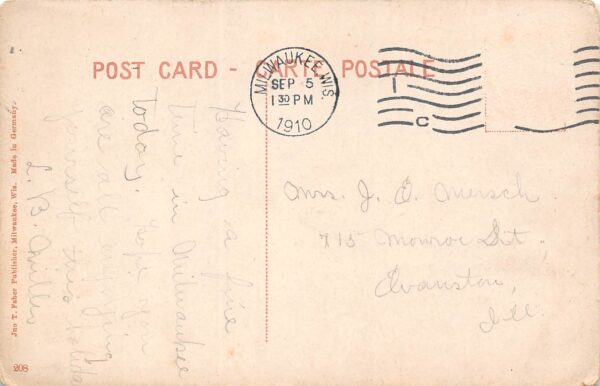 POST CARD - CARTE POSTALE
MILWAUKEE, WIS.
SEP 5
1 30 PM
1910
T
C
Having a fine
time in Milwaukee
today. hope you
are all enjoying
yourself this holiday
L. B. Miller
Mrs. J. O. Mersch
715 Monroe St.,
Evanston,
Ill.
Jno T. Faber Publisher, Milwaukee, Wis. Made in Germany.
208